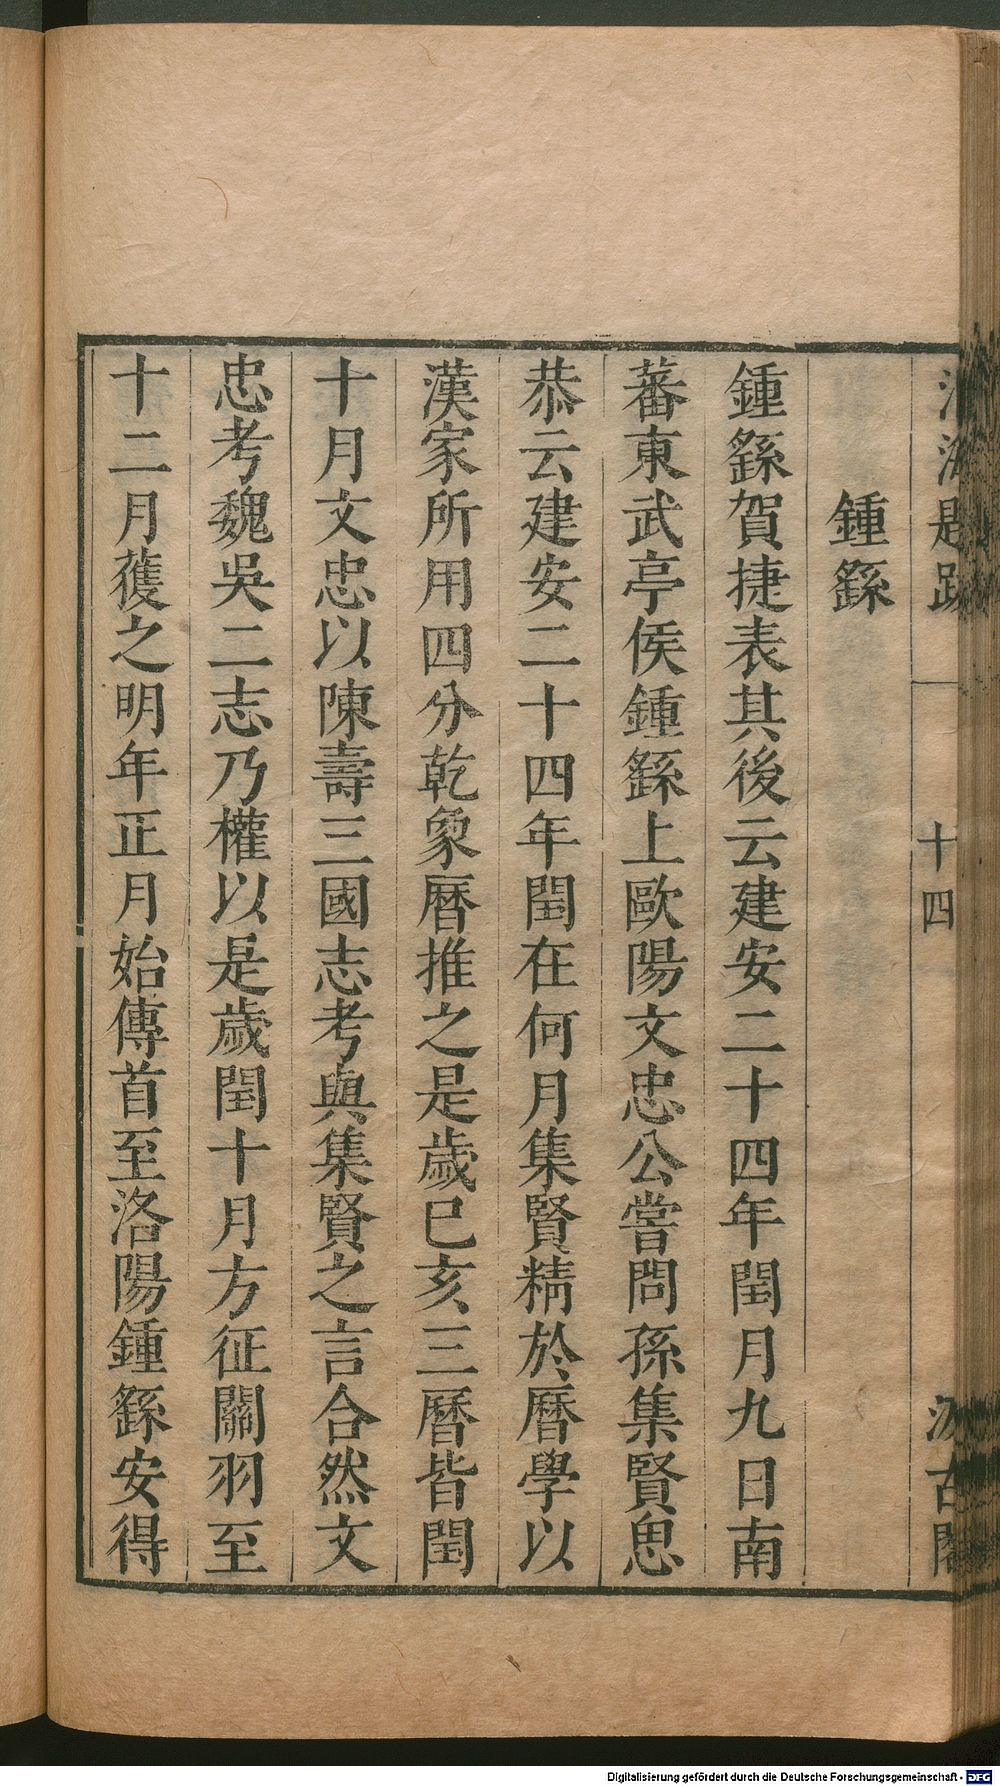 十四
鍾繇
鍾繇賀捷表其後云建安二十四年閏月九日南
蕃東武亭侯鍾繇上歐陽文忠公嘗問孫集賢思
恭云建安二十四年閏在何月集賢精於曆學以
漢家所用四分乾象曆推之是歲已亥三曆皆閏
十月文忠以陳壽三國志考與集賢之言合然文
忠考魏吳二志乃權以是歲閏十月方征關羽至
十二月獲之明年正月始傳首至洛陽鍾繇安得
Digitalisierung gefördert durch die Deutsche Forschungsgemeinschaft - DFG